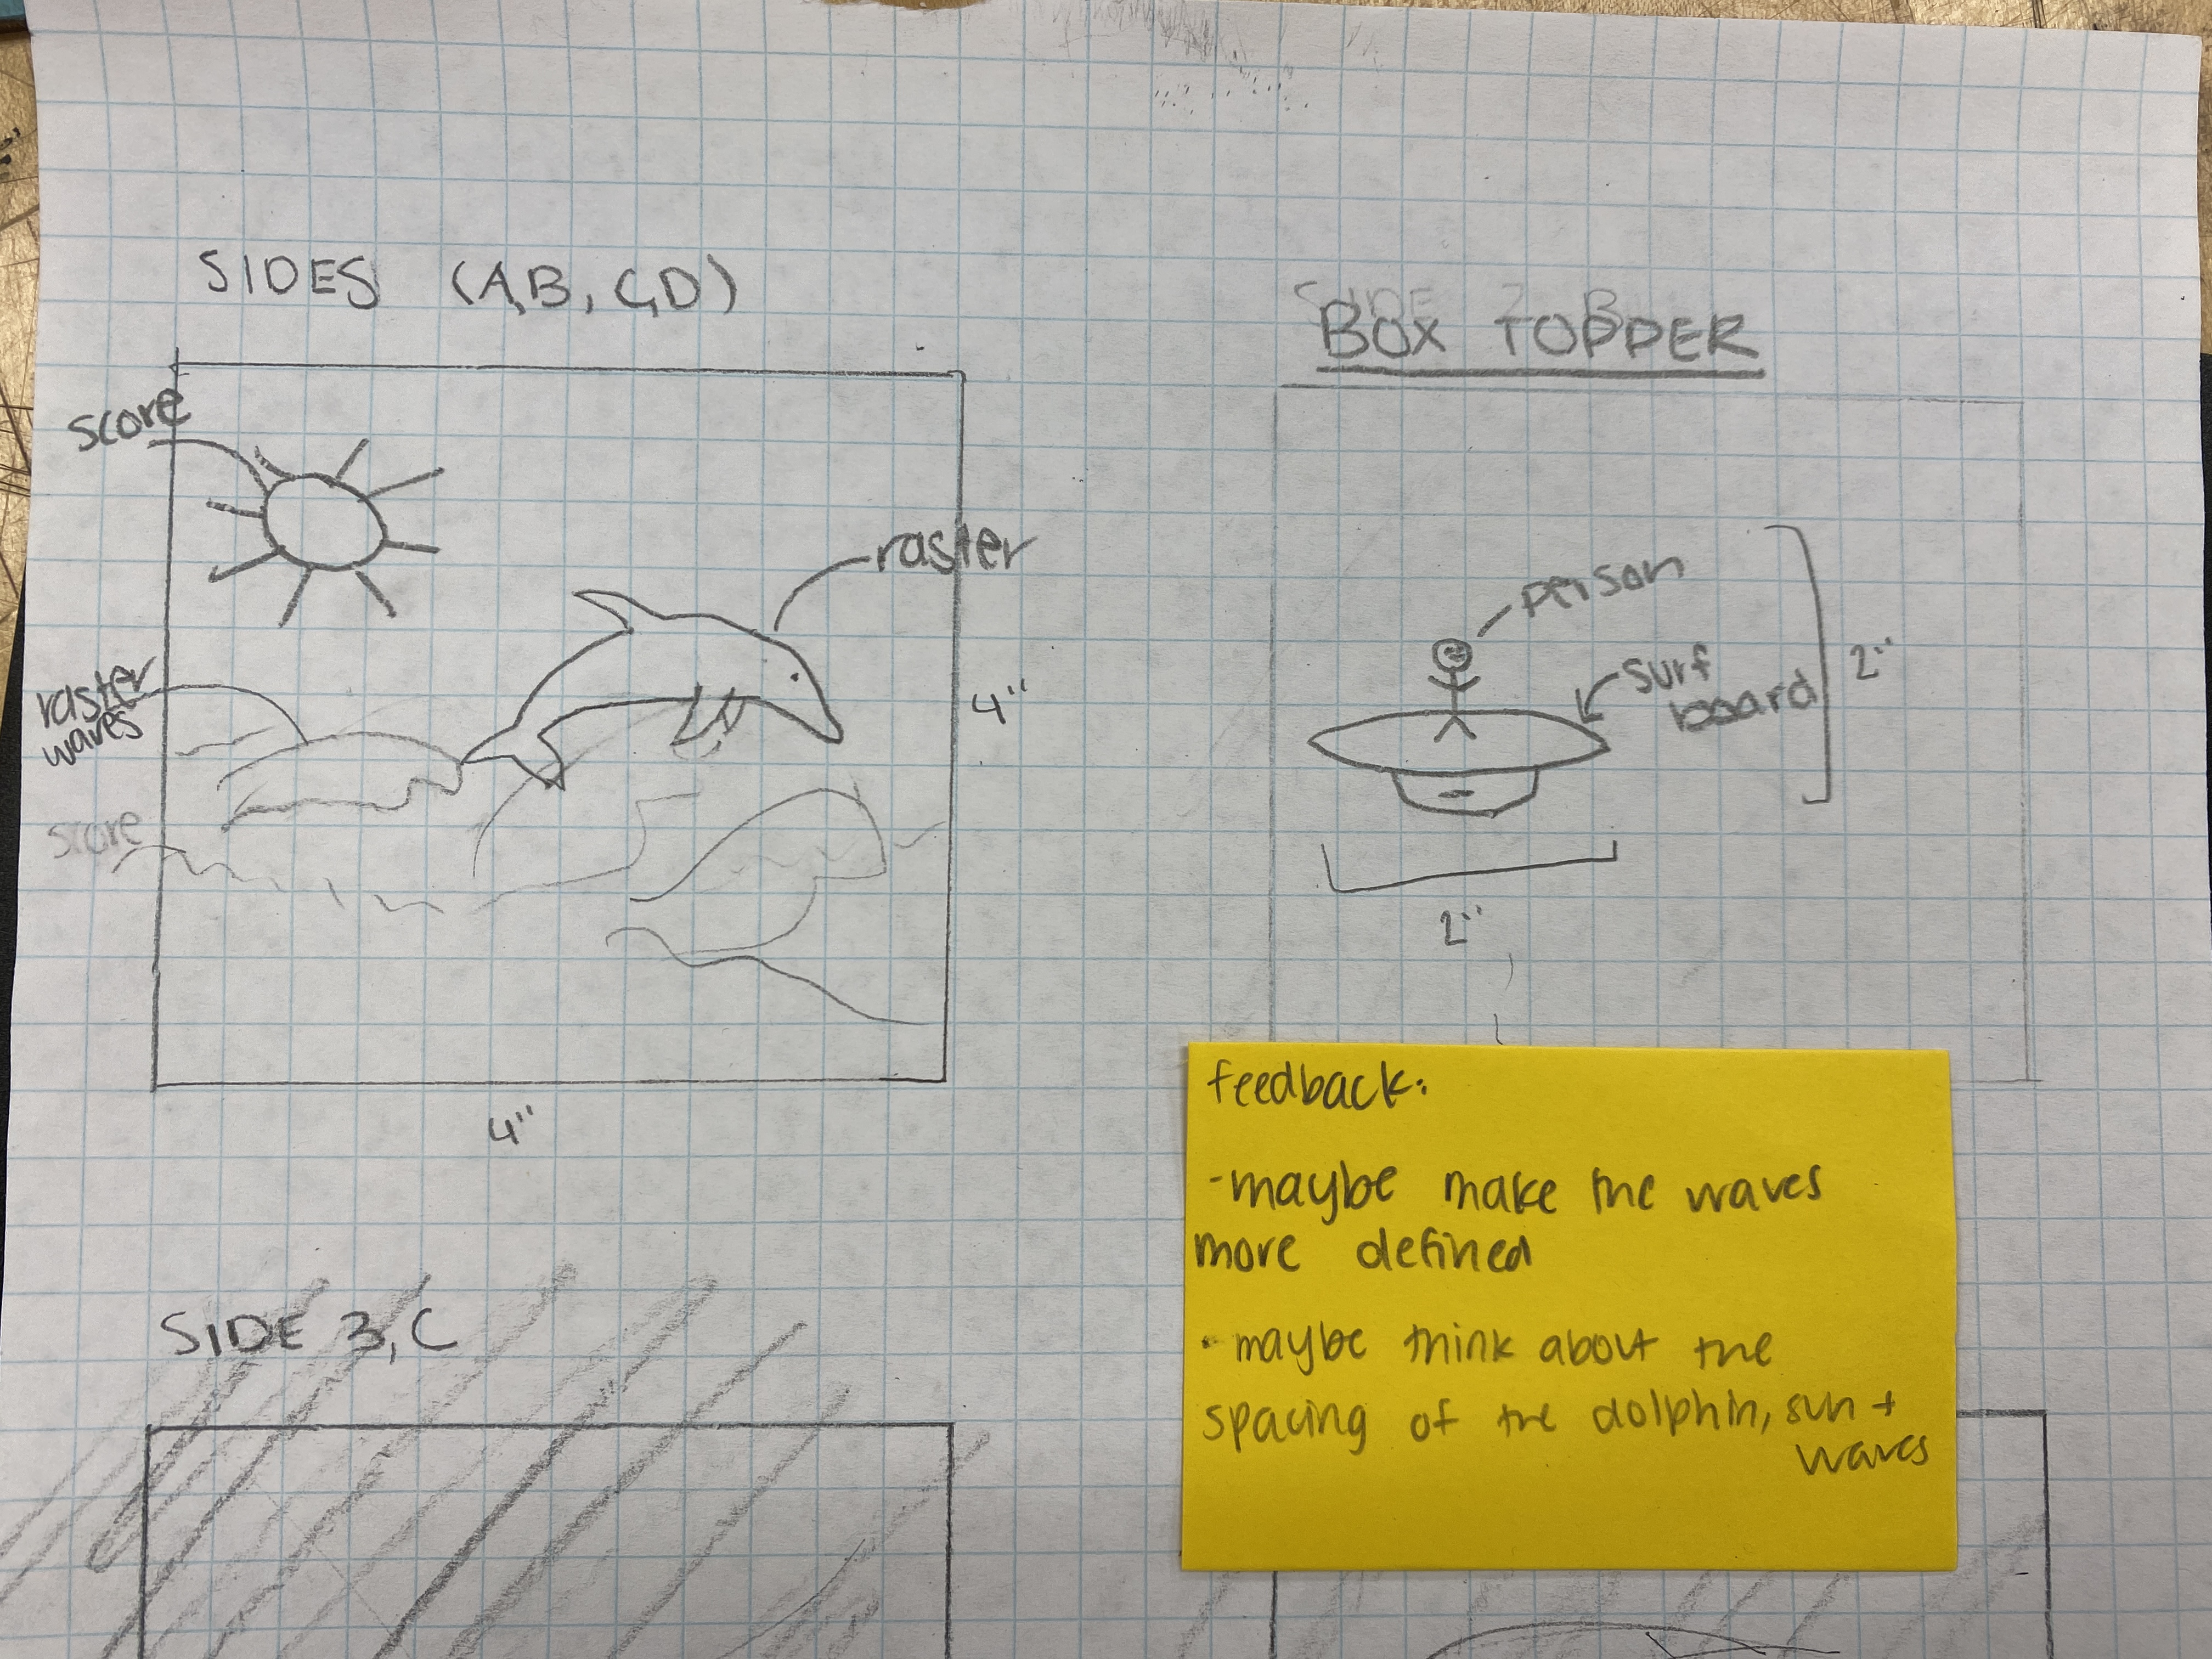 SIDES (A,B,C,D)
score
raster
waves
score
raster
4"
4"
SIDE B,C
BOX TOPPER
person
surf
board
2"
2"
feedback:
- maybe make the waves
more defined
• maybe think about the
spacing of the dolphin, sun +
waves